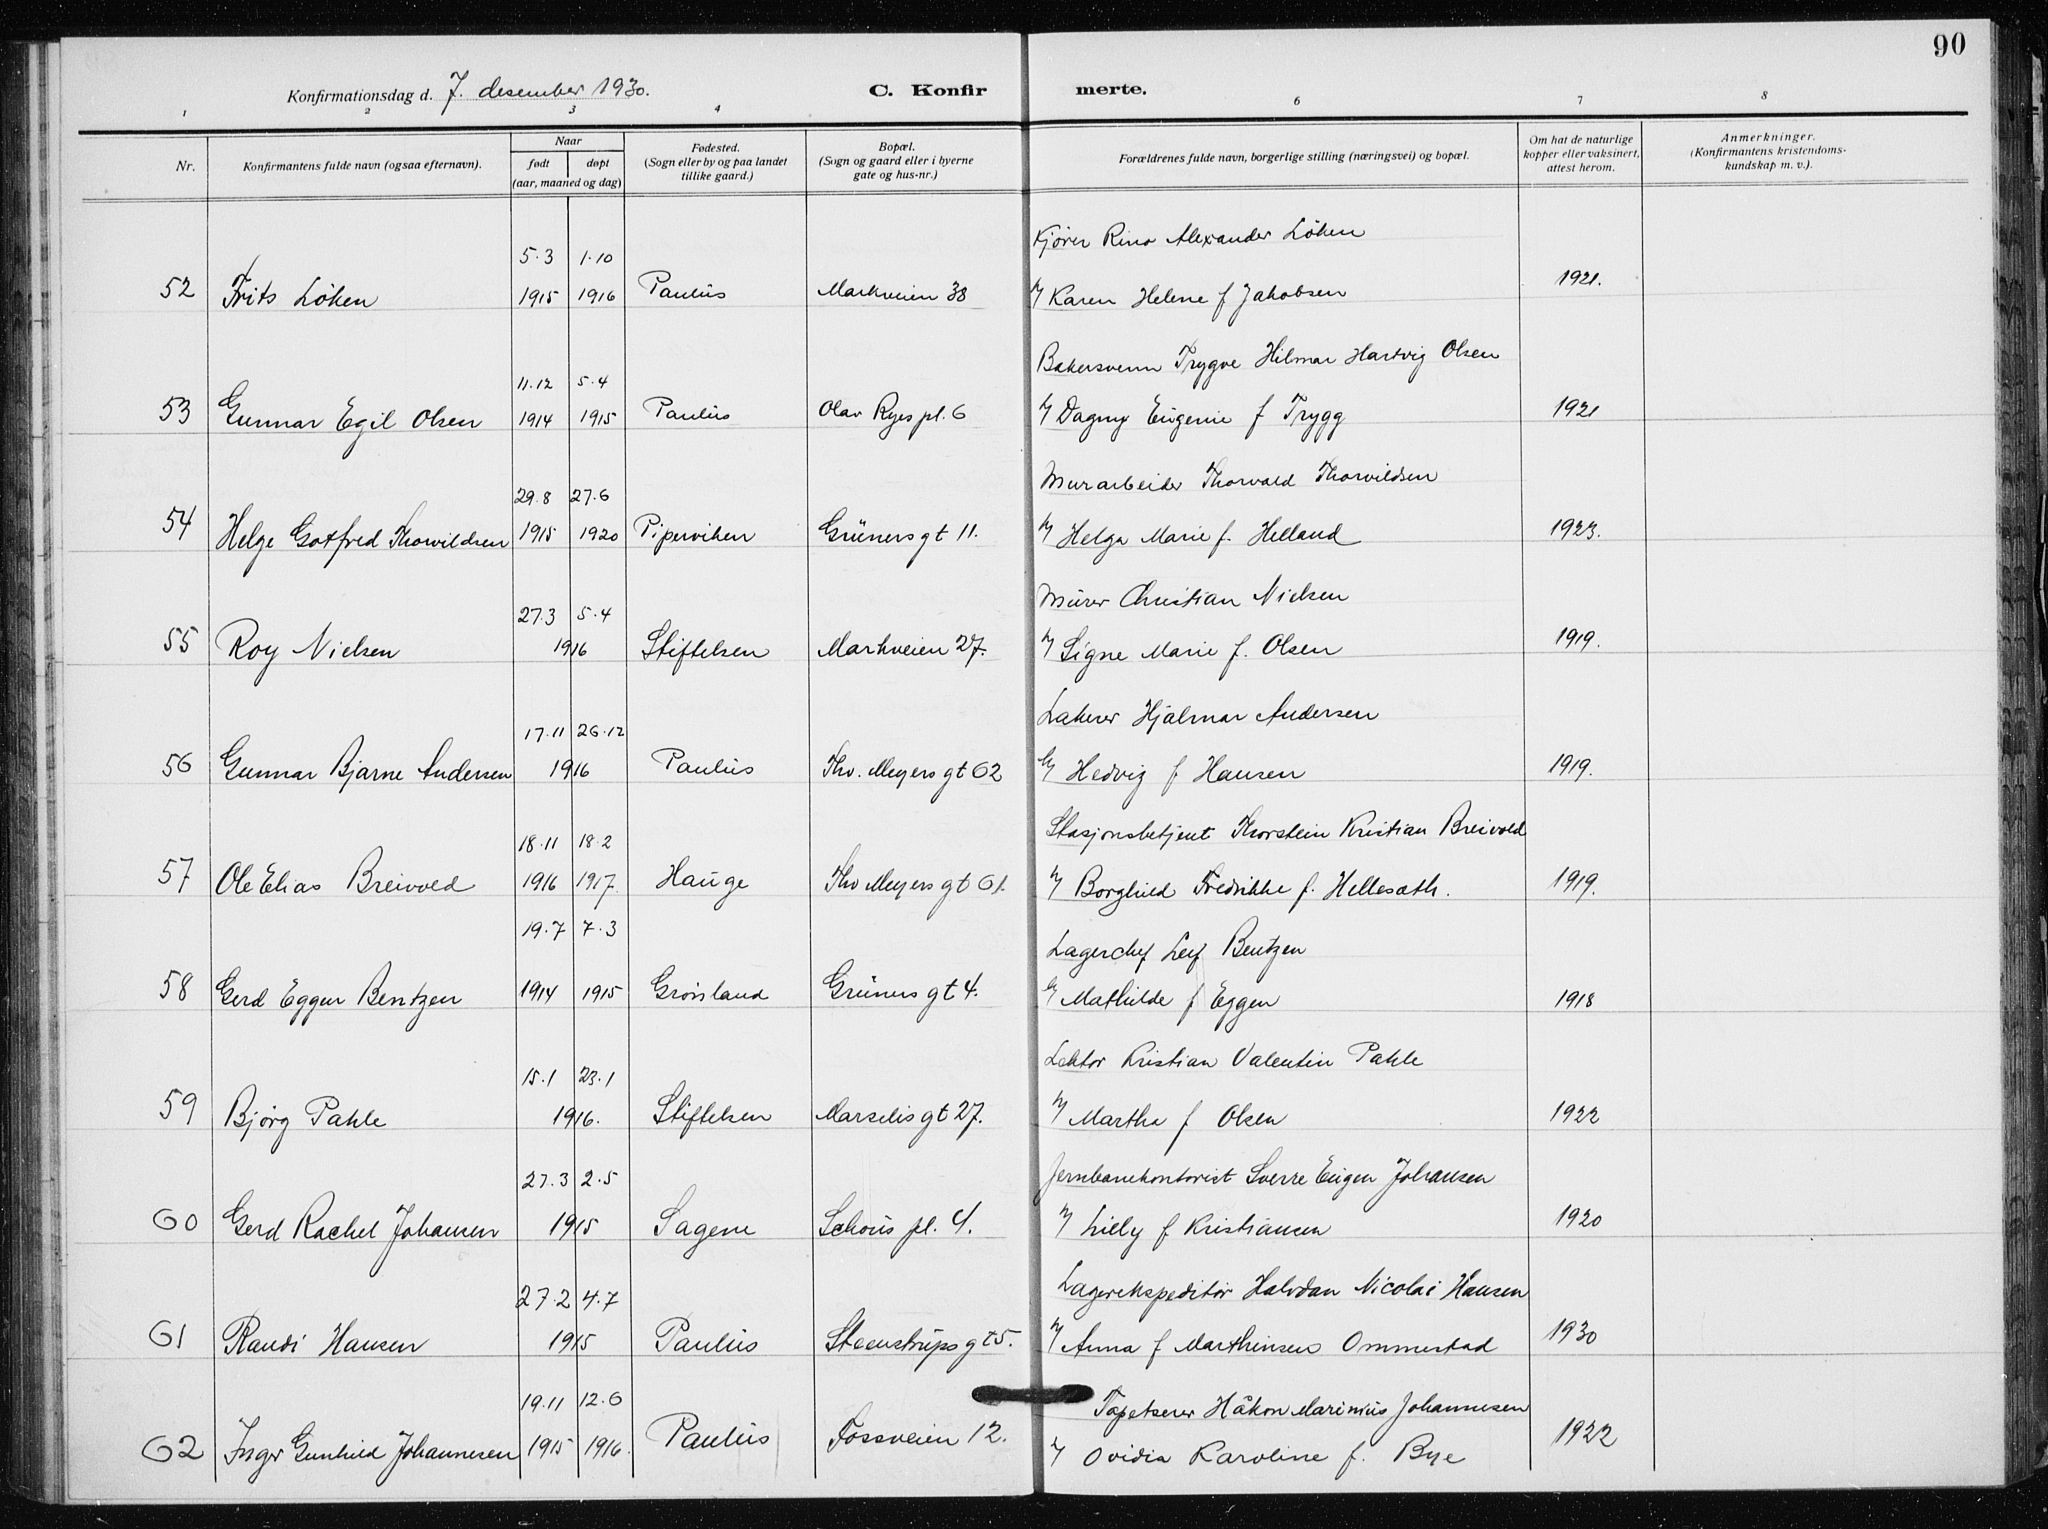 90
Konfirmationsdag d. 7. desember 1930. C. Konfir merte.
1 2 3 4 6 7 8
Nr. Konfirmantens fulde navn (ogsaa efternavn). Naar født døpt (aar, maaned og dag) Fødested. (Sogn eller by og paa landet tillike gaard.) Bopæl. (Sogn og gaard eller i byerne gate og hus-nr.) Forældrenes fulde navn, borgerlige stilling (næringsvei) og bopæl. Om hat de naturlige kopper eller vaksinert, attest herom. Anmerkninger. (Konfirmantens kristendoms-kundskap m. v.).
5.3 1.10 Kjører Rino Alexander Löken
52 Frits Löken 1915 1916 Paulüs Markveien 38 Karen Helene f Jakobsen 1921.
11.12 5.4 Bakersvenn Trygve Hilmar Hartvig Olsen
53 Gunnar Egil Olsen 1914 1915 Paulüs Olav Ryes pl. 6 Dagny Eugenie f Trygg 1921
29.8 27.6 Murarbeider Thorvald Thorvildsen
54 Helge Gotfred Thorvildsen 1915 1920 Piperviken Grüners gt 11. Helga Marie f. Helland 1923.
27.3 5.4 Mürer Christian Nielsen
55 Roy Nielsen 1916 Stiftelsen Markveien 27. Signe Marie f. Olsen 1919.
17.11 26.12 Lakerer Hjalmar Andersen
56 Gunnar Bjarne Andersen 1916 Paulüs Thv. Meyers gt 62 Hedvig f Hansen 1919.
18.11 18.2 Stasjonsbetjent Thorstein Kristian Breivold
57 Ole Elias Breivold 1916 1917. Hauge Thv Meyers gt 61. Borghild Fredrikke f. Hellesæth. 1919.
19.7 7.3 Lagerchef Leif Bentzen
58 Gerd Eggen Bentzen 1914 1915 Grønland Grüners gt 4. Mathilde f Eggen 1918
15.1 23.1 Lektor Kristian Valentin Pahle
59 Bjørg Pahle 1916. Stiftelsen Marselis gt 27. Martha f Olsen 1922
27.3 2.5 Jernbanekontorist Sverre Eugen Johansen
60 Gerd Rachel Johansen 1915 Sagene Schous pl. 4. Lilly f Kristiansen 1920
27.2 4.7 Lagerekspeditør Halvdan Nicolai Hansen
61 Randi Hansen 1915 Paulüs Steenstrüps gt 5. Anna f Marthinsen Ommestad 1930
19.11 12.6 Tapetserer Håkon Marinius Johannesen
62 Inger Gunhild Johannesen 1915 1916. Paulüs Fossveien 12. Ovidia Karoline f. Bye 1922